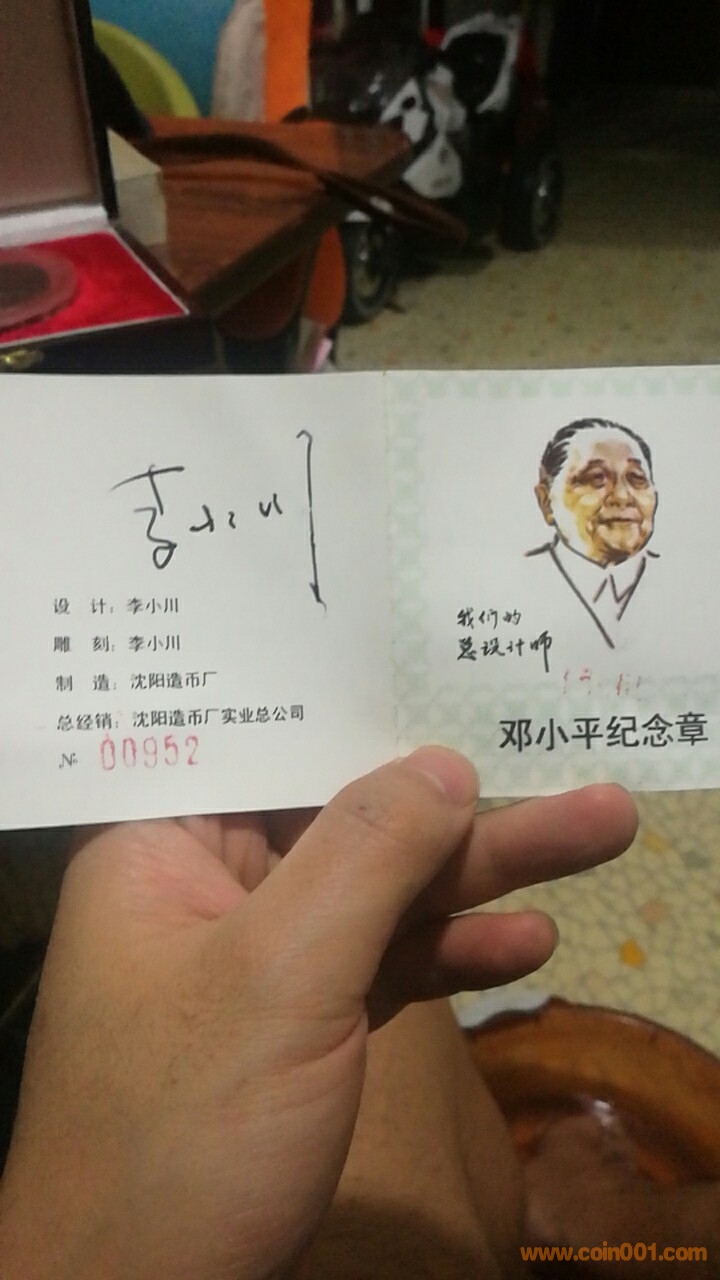 李小川
设 计：李小川
雕 刻：李小川
制 造：沈阳造币厂
总经销：沈阳造币厂实业总公司
№ 00952
我们的
总设计师
邓小平纪念章
www.coin001.com